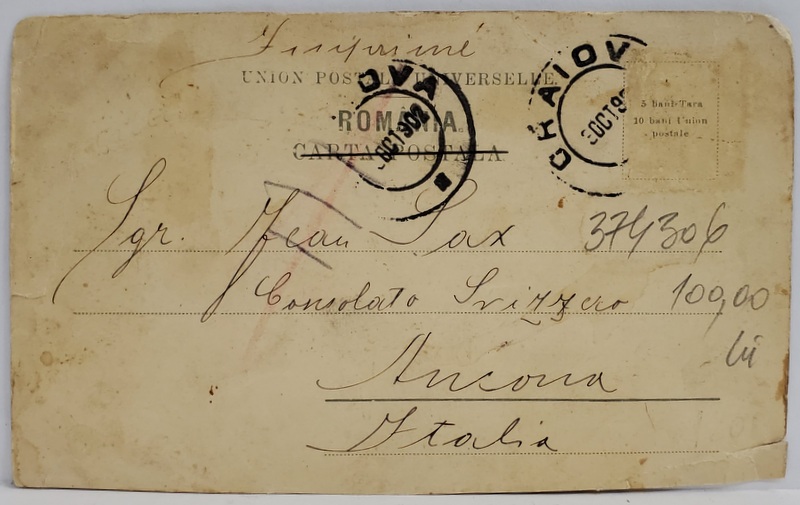 Imprimé
UNION POSTALE UNIVERSELLE
ROMÂNIA
CARTA POSTALA
OVA
OCT 902
CRAIOV
OCT 90
5 bani Tara
10 bani Union
postale
Sgr. Jean Sax
374306
Consolato Svizzero
100,00
lei
Ancona
Italia